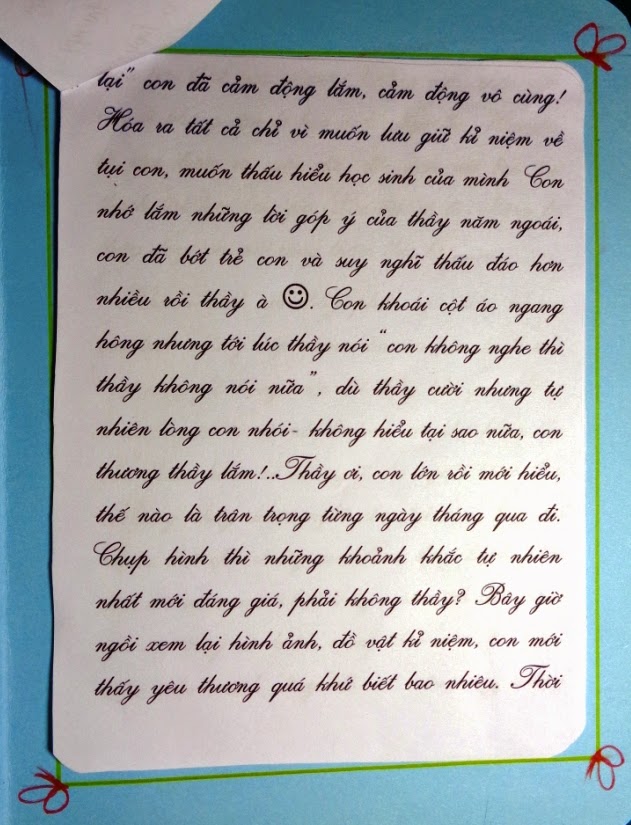 lại” con đã cảm động lắm, cảm động vô cùng!
Hóa ra tất cả chỉ vì muốn lưu giữ kỉ niệm về
tụi con, muốn thấu hiểu học sinh của mình Con
nhớ lắm những lời góp ý của thầy năm ngoái,
con đã bớt trẻ con và suy nghĩ thấu đáo hơn
nhiều rồi thầy à ☺. Con khoái cột áo ngang
hông nhưng tới lúc thầy nói “con không nghe thì
thầy không nói nữa”, dù thầy cười nhưng tự
nhiên lòng con nhói- không hiểu tại sao nữa, con
thương thầy lắm!..Thầy ơi, con lớn rồi mới hiểu,
thế nào là trân trọng từng ngày tháng qua đi.
Chụp hình thì những khoảnh khắc tự nhiên
nhất mới đáng giá, phải không thầy? Bây giờ
ngồi xem lại hình ảnh, đồ vật kỉ niệm, con mới
thấy yêu thương quá khứ biết bao nhiêu. Thời